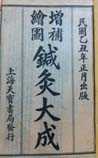 民國乙丑年正月出版
增補
繪圖
鍼灸大成
上海天寶書局發行